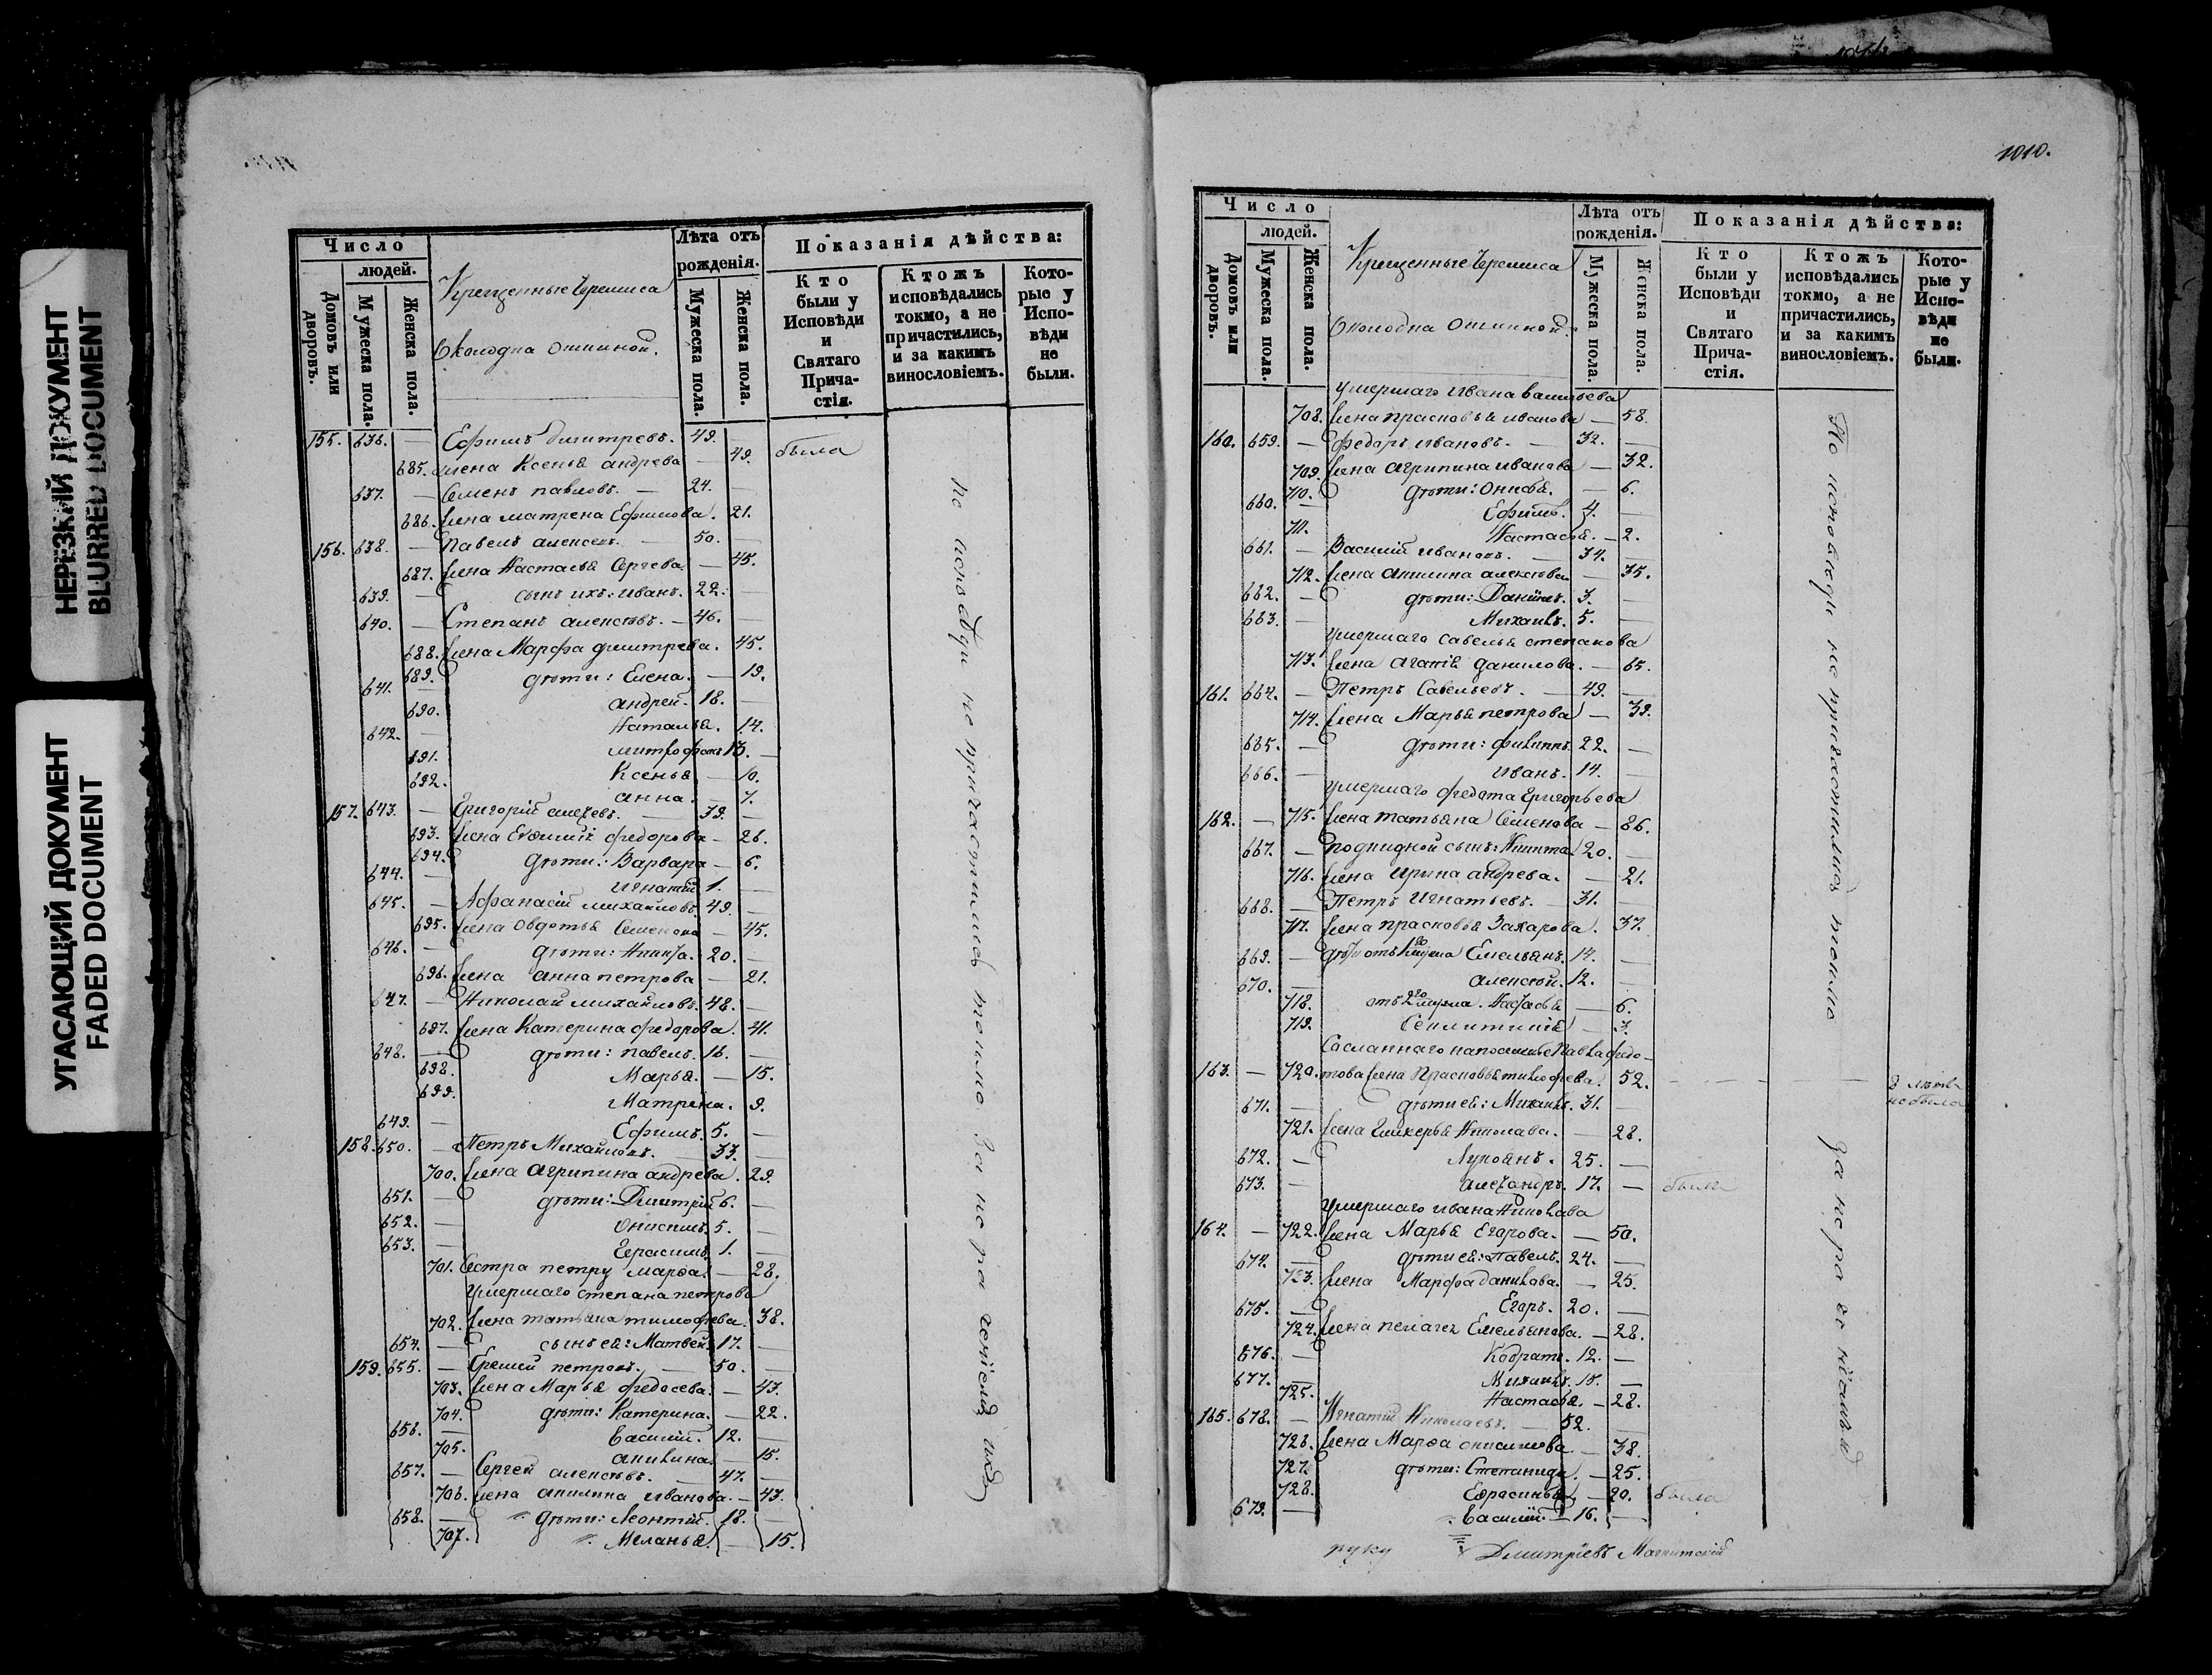 НЕРЕЗКИЙ ДОКУМЕНТ
BLURRED DOCUMENT
УГАСАЮЩИЙ ДОКУМЕНТ
FADED DOCUMENT
Число
людей.
Домовъ или дворовъ.
Мужеска пола.
Женска пола.
Крещенные Черемиса
Околодка
Лѣта отъ рожденія.
Мужеска пола.
Женска пола.
Показанія дѣйства:
Кто были у Исповѣди и Святаго Прича-стія.
Ктожъ исповѣдались токмо, а не причастились, и за какимъ винословіемъ.
Кото-рые у Испо-вѣди не были.
155. 636. — Ефимъ Димитревъ. 49.
685. жена Ксенья андрева — 49. была
637. — Семенъ павловъ. — 24. —
686. жена матрена Ефимова. 21.
156. 638. — Павелъ алексеевъ. — 50. —
687. жена Настасья Сергева. — 45.
639. — сынъ ихъ: иванъ. 22. —
640. — Степанъ алексѣевъ. — 46. —
688. жена Марфа дмитрева. 45.
689. дѣти: Елена. — 19.
641. — андрей. 18. —
690. Наталья. — 14.
642. — митрофанъ 13. —
691. Ксенья — 10.
692. анна. — 7.
157. 643. — Григорій 39. —
693. жена федорова — 26.
694. дѣти: Варвара — 6.
644. — игнатій 1. —
645. — Афанасій михайловъ. 49. —
695. жена Овдотья Семенова — 45.
646. — дѣти: Никита. 20. —
696. жена анна петрова — 21.
647. — Николай михайловъ. 48. —
697. жена Катерина федорова. 41.
648. — дѣти: павелъ. 16. —
698. Марья. — 15.
699. Матрена. 9.
649. — Ефимъ. 5. —
158. 650. — Петръ Михайловъ. 33. —
700. жена Агрипина андрева. 29.
651. — дѣти: Дмитрій 6. —
652. — онисимъ. 5. —
653. — Герасимъ. 1. —
701. Сестра петру марфа. — 28.
Умершаго степана петрова
702. жена татьяна тимофева. 38.
654. — сынъ ея: Матвей. 17. —
159. 655. — петровъ. 50. —
703. жена Марья федосева. — 43.
704. дѣти: Катерина. — 22.
656. — Василій. 12. —
705. акилина 15.
657. — Сергей алексѣевъ. — 47. —
706. жена акилина иванова. — 43.
658. — дѣти: Леонтій. 18. —
707. Меланья. — 15.
По исповѣди не причастились токмо за нерачениемъ
1010.
Число
людей.
Домовъ или дворовъ.
Мужеска пола.
Женска пола.
Крещенные Черемиса
Околодка
Лѣта отъ рожденія.
Мужеска пола.
Женска пола.
Показанія дѣйства:
Кто были у Исповѣди и Святаго Прича-стія.
Ктожъ исповѣдались токмо, а не причастились, и за какимъ винословіемъ.
Кото-рые у Испо-вѣди не были.
Умершаго ивана васильева
708. жена прасковья иванова — 58.
160. 659. — федоръ ивановъ. — 32. —
709. жена агрипина иванова — 32.
710. дѣти: Онисья. — 6.
660. — Ефимъ. 4. —
711. Настасья. — 2.
661. — Василій ивановъ. — 34. —
712. жена акилина алексѣева — 35.
662. — дѣти: Даніилъ. 3. —
663. — Михаилъ. 5. —
Умершаго савелья степанова
713. жена агапія данилова. — 65.
161. 664. — Петръ Савельевъ. — 49. —
714. жена Марья петрова — 39.
665. — дѣти: филиппъ. 22. —
666. — иванъ. 14. —
Умершаго федота Григорьева
162. — 715. жена татьяна Семенова — 86.
667. — подкидной сынъ: Никита 20. —
716. жена ирина андрева. — 21.
668. — Петръ Игнатьевъ. — 31. —
717. жена прасковья Захарова. 37.
669. — дѣти отъ 1го мужа Емельянъ. 14. —
670. — алексѣй. 12. —
718. отъ 2го мужа. — 6.
719. — 3.
Сосланнаго на поселенье Павла федо-
163. — 720. това жена Прасковья тимофева. 52. — — — — у исповѣди небыла
671. — дѣти ея: Михаилъ. 31. —
721. жена Гликерья Николава. — 28.
672. — Лукоянъ. 25. —
673. — александръ. 17. — былъ
Умершаго ивана Николава
164. — 722. жена Марья Егорова. — 50.
674. — дѣти ея: Павелъ. 24. —
723. жена Марфа данилова. — 25.
675. — Егоръ. 20. —
724. жена пелагея Емельянова. — 28.
676. — Кодратъ. 12. —
677. — Михаилъ. 15. —
725. Настасья. — 28.
165. 678. — Игнатій Николаевъ. — 52.
726. жена Марфа онисимова. — 38.
727. дѣти: Степанида. — 25.
728. Ефросинья. — 20. была
679. — Василій. — 16. —
По исповѣди не причастились токмо за нерачениемъ
руку Дмитріевъ Магнитскій